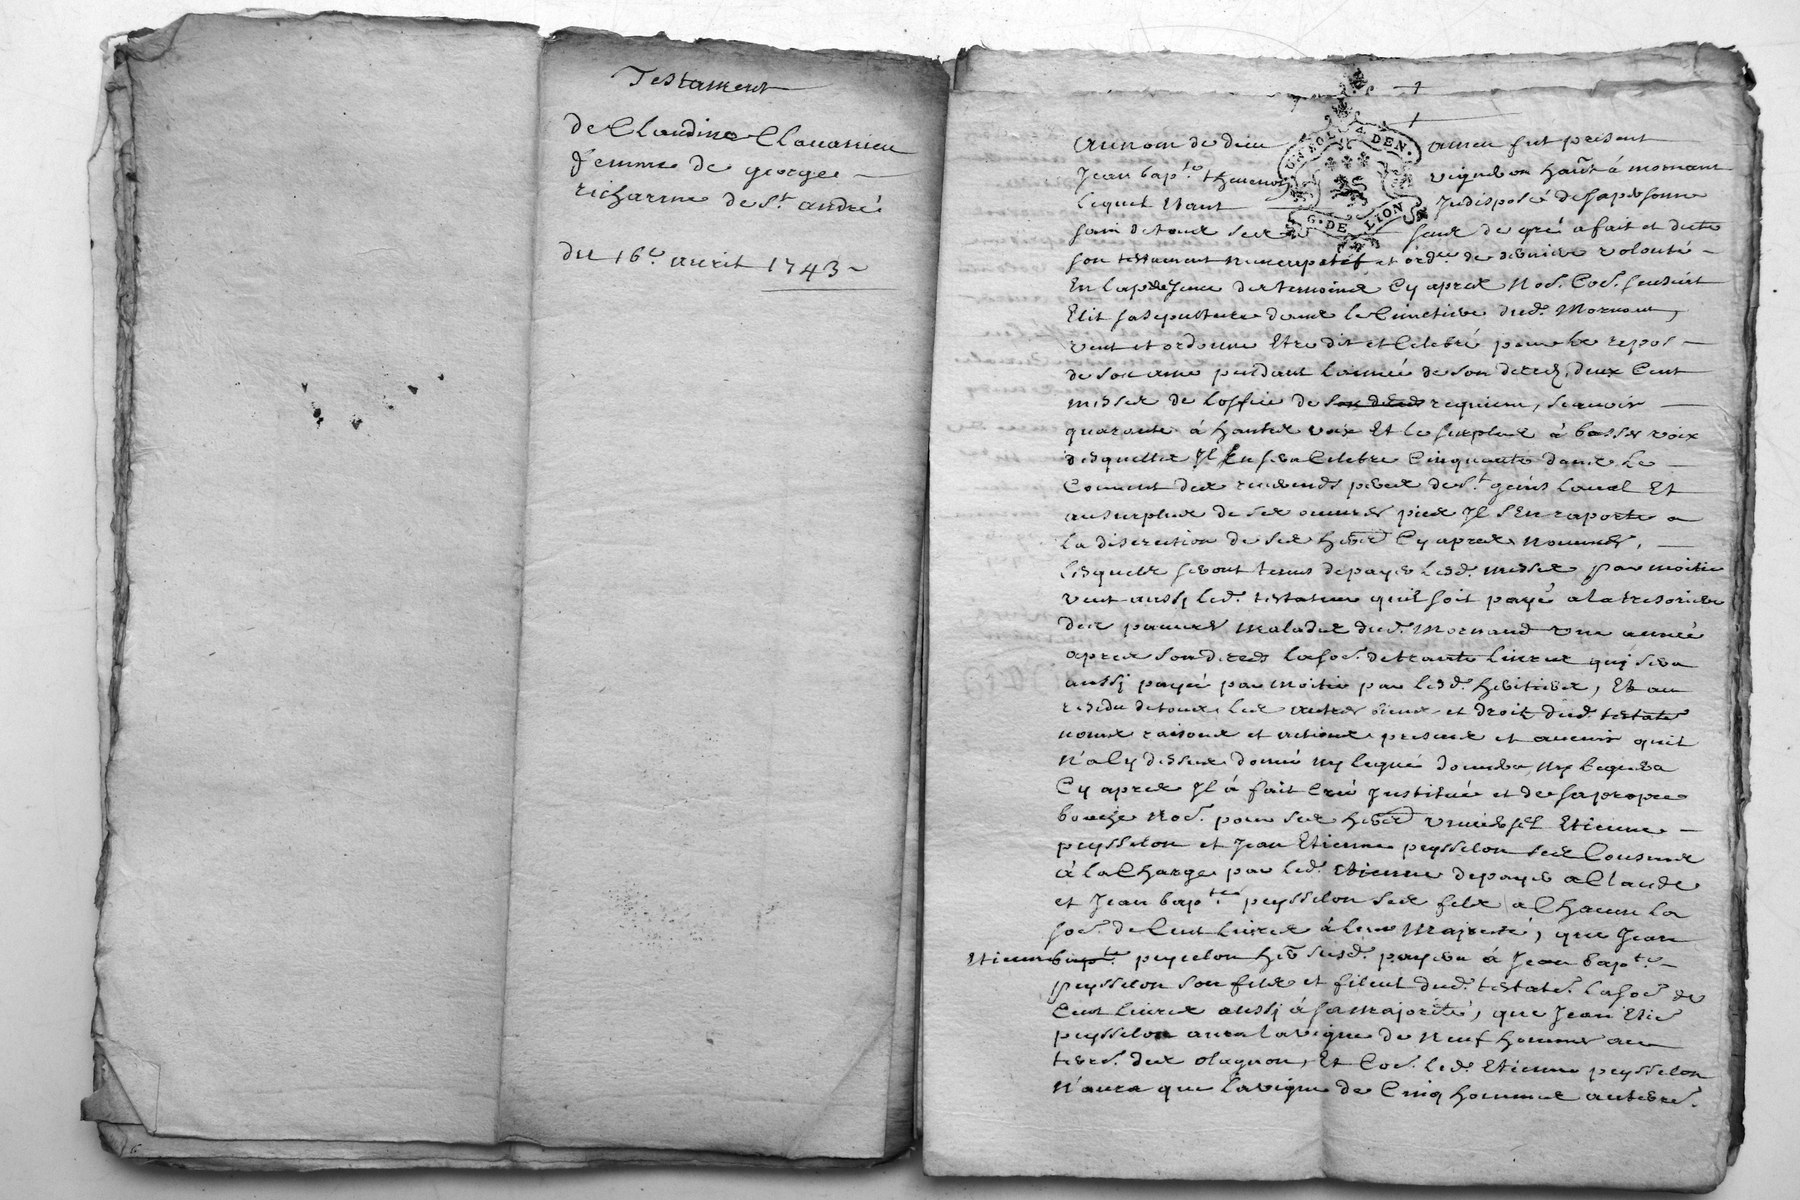 Testament
de Claudine Chouassieu
femme de george
richarme de St. andré
du 16e. avril 1743
Au nom de dieu amen fut présent
Jean bapte. thevenot vigneron habt. à mornant
lequel Etant Indisposé de sa personne
sain de tous ses sens de gré a fait et dicté
son testament nuncupatif et ordre. de derniere volonté
En la présence des temoins Cy apres Nos. Co̅e. sensuit
Elit sa sepulture dans le Cimetiere dud. Mornant,
veut et ordonne Etre dit et Celebré pour le repos
de son ame pendant l'année de son deced, deux Cent
messes de l'office de requiem, scavoir
quarante à hautes voix Et le surplus à basses voix
desquelles Il En sera Celebre Cinquante dans le
Couvent des reverends peres de St. genis Laval Et
au surplus de ses œuvres pies Il s'En raporte a
la discretion de ses hers Cy apres nommés,
lesquels seront tenus de payer lesd. messes par moitie
veut aussy led. testateur quil soit payé a la tresoriere
des pauvres malades dud. Mornand une année
apres son deced la soe. de trante livres qui sera
aussy payée par moitie par lesd. heritiers, Et au
residu de tous les autres biens et droits dud. testate.
noms raisons et actions presents et avenir quil
N'a Cy dessus donné ny legué donnera ny leguera
Cy apres Il à fait Créé Institué et de sa propre
bouche Noé. pour ses hers universel Etienne
peysselon et Jean Etienne peysselon ses Cousins
à la Charge par led. Etienne de payer a Claude
et Jean bapte. peysselon ses fils a Chacun la
soe. de Cent livres à leur Majorité, que Jean
Etienne bapte. peysselon her. susd. payera à Jean bapte.
peysselon son fils et filleul dud. testate. la soe. de
Cent livres aussy à sa majorité, que Jean Etie
peysselon aura la vigne de Neuf hommes au
terre. des olagnon, Et Coe. led. Etienne peysselon
N'aura que la vigne de Cinq hommes au terre.
G. DE LION